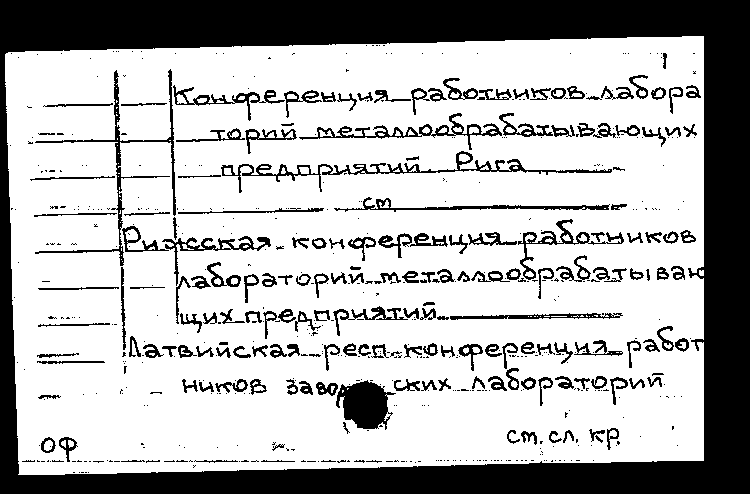 1
Конференция работников лабора
торий металлообрабатывающих
предприятий. Рига
см
Рижсская конференция работников
лабораторий металлообрабатываю
щих предприятий
Латвийская респ. конференция работ
ников заводских лабораторий
ОФ см. сл. кр.